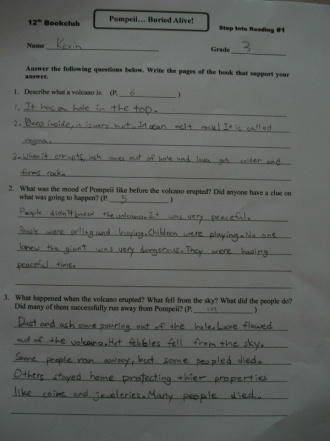 12th Bookclub
Pompeii... Buried Alive!
Step Into Reading #1
Name Kevin
Grade 3
Answer the following questions below. Write the pages of the book that support your
answer.
1. Describe what a volcano is. (P. 6 )
1. It has a hole in the top.
2. Deep inside, it is very hot. It can melt rock! It is called
magma.
3. When it erupts, ash comes out of hole and lava get colder and
forms rock.
2. What was the mood of Pompeii like before the volcano erupted? Did anyone have a clue on
what was going to happen? (P. 5 )
People didn't knew the volcano. It was very peaceful.
were selling and buying. Children were playing. No one
knew the giant was very dangerous. They were having
peaceful time.
3. What happened when the volcano erupted? What fell from the sky? What did the people do?
Did many of them successfully run away from Pompeii? (P. )
Dust and ash came pouring out of the hole. Lava flowed
out of the volcano. Hot pebbles fell from the sky.
Some people ran away, but some peopled died.
Others stayed home protecting thier properties
like coins and jeweleries. Many people died.